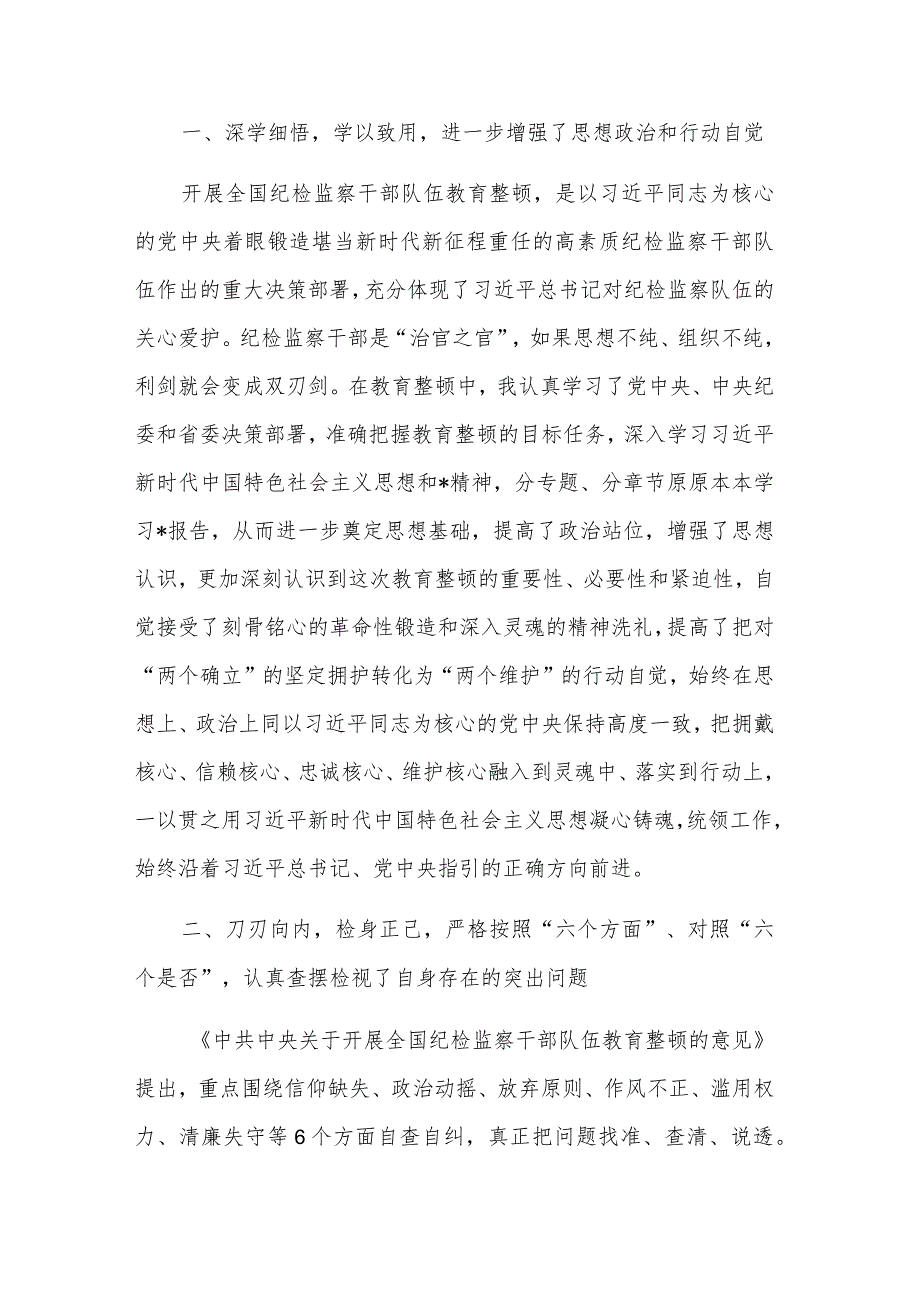 一、深学细悟，学以致用，进一步增强了思想政治和行动自觉
开展全国纪检监察干部队伍教育整顿，是以习近平同志为核心
的党中央着眼锻造堪当新时代新征程重任的高素质纪检监察干部队
伍作出的重大决策部署，充分体现了习近平总书记对纪检监察队伍的
关心爱护。纪检监察干部是“治官之官”，如果思想不纯、组织不纯，
利剑就会变成双刃剑。在教育整顿中，我认真学习了党中央、中央纪
委和省委决策部署，准确把握教育整顿的目标任务，深入学习习近平
新时代中国特色社会主义思想和*精神，分专题、分章节原原本本学
习*报告，从而进一步奠定思想基础，提高了政治站位，增强了思想
认识，更加深刻认识到这次教育整顿的重要性、必要性和紧迫性，自
觉接受了刻骨铭心的革命性锻造和深入灵魂的精神洗礼，提高了把对
“两个确立”的坚定拥护转化为“两个维护”的行动自觉，始终在思
想上、政治上同以习近平同志为核心的党中央保持高度一致，把拥戴
核心、信赖核心、忠诚核心、维护核心融入到灵魂中、落实到行动上，
一以贯之用习近平新时代中国特色社会主义思想凝心铸魂，统领工作，
始终沿着习近平总书记、党中央指引的正确方向前进。
二、刀刃向内，检身正己，严格按照“六个方面”、对照“六
个是否”，认真查摆检视了自身存在的突出问题
《中共中央关于开展全国纪检监察干部队伍教育整顿的意见》
提出，重点围绕信仰缺失、政治动摇、放弃原则、作风不正、滥用权
力、清廉失守等6个方面自查自纠，真正把问题找准、查清、说透。